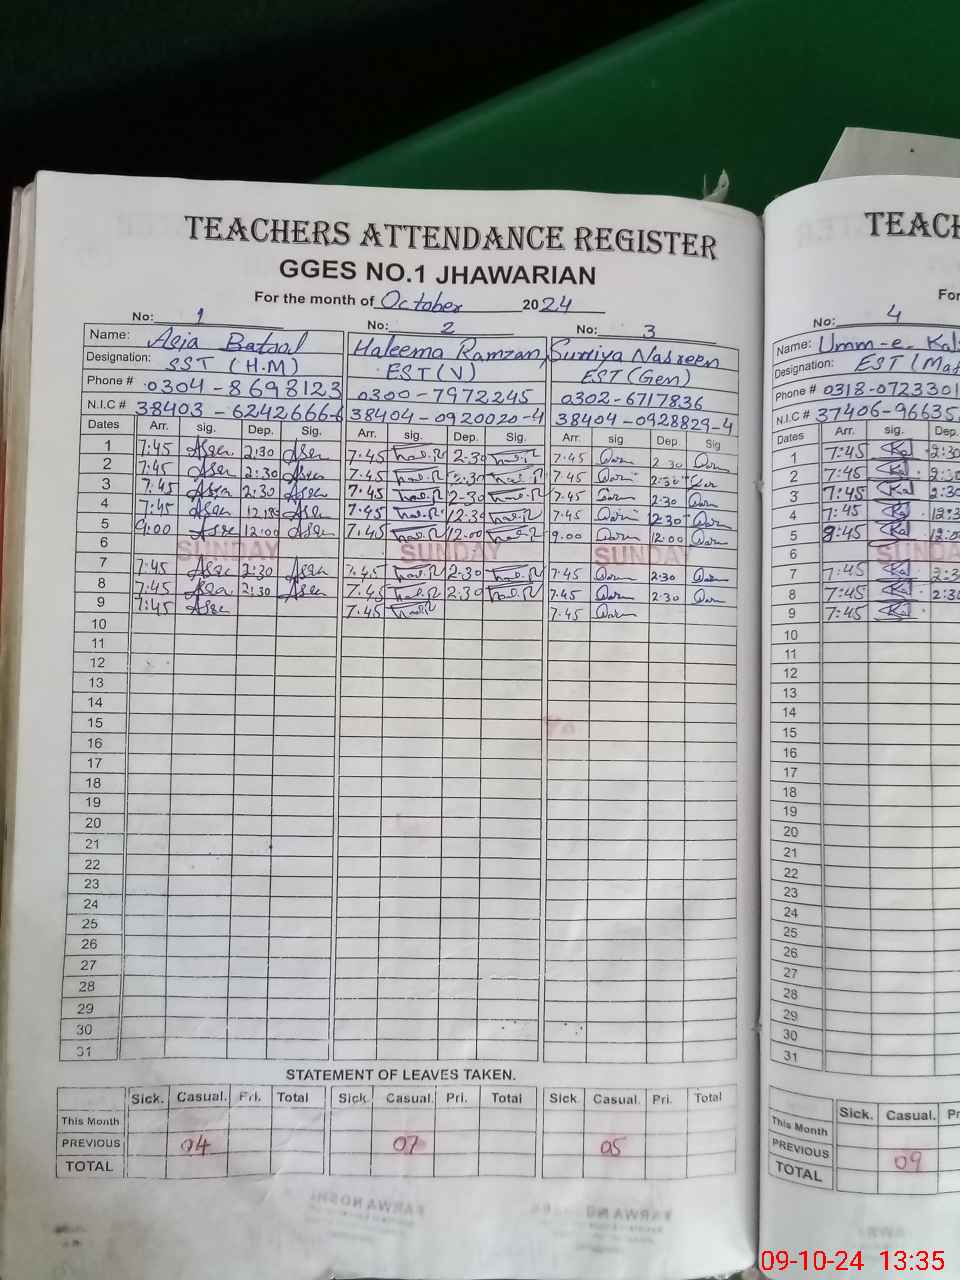 TEACHERS ATTENDANCE REGISTER
GGES NO.1 JHAWARIAN
For the month of October 2024
No: 1 No: 2 No: 3
Name: Asia Batool Haleema Ramzan Surriya Nasreen
Designation: SST (H.M) EST (V) EST (Gen)
Phone # 0304-8698123 0300-7972245 0302-6717836
N.I.C # 38403-6242666-6 38404-0920020-4 38404-0928829-4
Dates Arr. sig. Dep. Sig. Arr. sig. Dep. Sig. Arr. sig Dep Sig
1 7:45 2:30 7.45 2.30 7.45 2.30
2 7:45 2:30 7.45 2.30 7.45 2.30
3 7:45 2:30 7.45 2.30 7.45 2.30
4 7:45 7.45 12.30 7.45 12.30
5 9:00 12:00 7.45 12.00 9.00 12.00
6 SUNDAY SUNDAY SUNDAY
7 7:45 2:30 7.45 2.30 7.45 2.30
8 7:45 2:30 7.45 2.30 7.45 2.30
9 7:45 7.45 7.45
10
11
12
13
14
15
16
17
18
19
20
21
22
23
24
25
26
27
28
29
30
31
STATEMENT OF LEAVES TAKEN.
Sick. Casual. Pri. Total Sick. Casual. Pri. Total Sick. Casual. Pri. Total
This Month
PREVIOUS 04 07 05
TOTAL
TEACH
For
No: 4
Name: Umm-e-Kal
Designation: EST (Mat
Phone # 0318-0723301
N.I.C # 37406-96635
Dates Arr. sig. Dep.
1 7:45 2:30
2 7:45 2:30
3 7:45 2:30
4 7:45 12:3
5 8:45 12:00
6 SUNDA
7 7:45 2:3
8 7:45 2:30
9 7:45
10
11
12
13
14
15
16
17
18
19
20
21
22
23
24
25
26
27
28
29
30
31
Sick. Casual. Pr
This Month
PREVIOUS 09
TOTAL
09-10-24 13:35